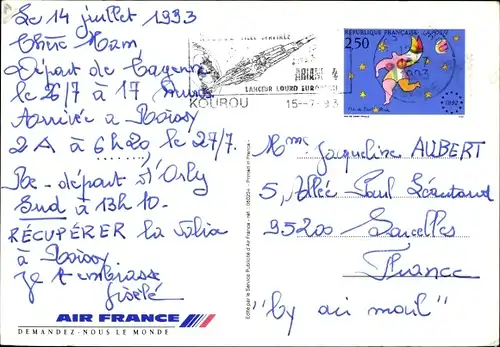 Le 14 juillet 1993
Chère Mam
Départ de Cayenne
le 26/7 à 17 heures
Arrivée à Roissy
2A à 6h20 le 27/7.
Re-départ d'Orly
Sud à 13h10.
RÉCUPÉRER la valise
à Roissy.
Je t'embrasse
Gisèle
AIR FRANCE
DEMANDEZ-NOUS LE MONDE
VILLE SPATIALE
ARIANE 4
LANCEUR LOURD EUROPEEN
KOUROU
15-7-93
REPUBLIQUE FRANÇAISE
2,50
1992
Mme Jacqueline AUBERT
5, Allée Paul Léautaud
95200 Sarcelles
France
"by air mail"